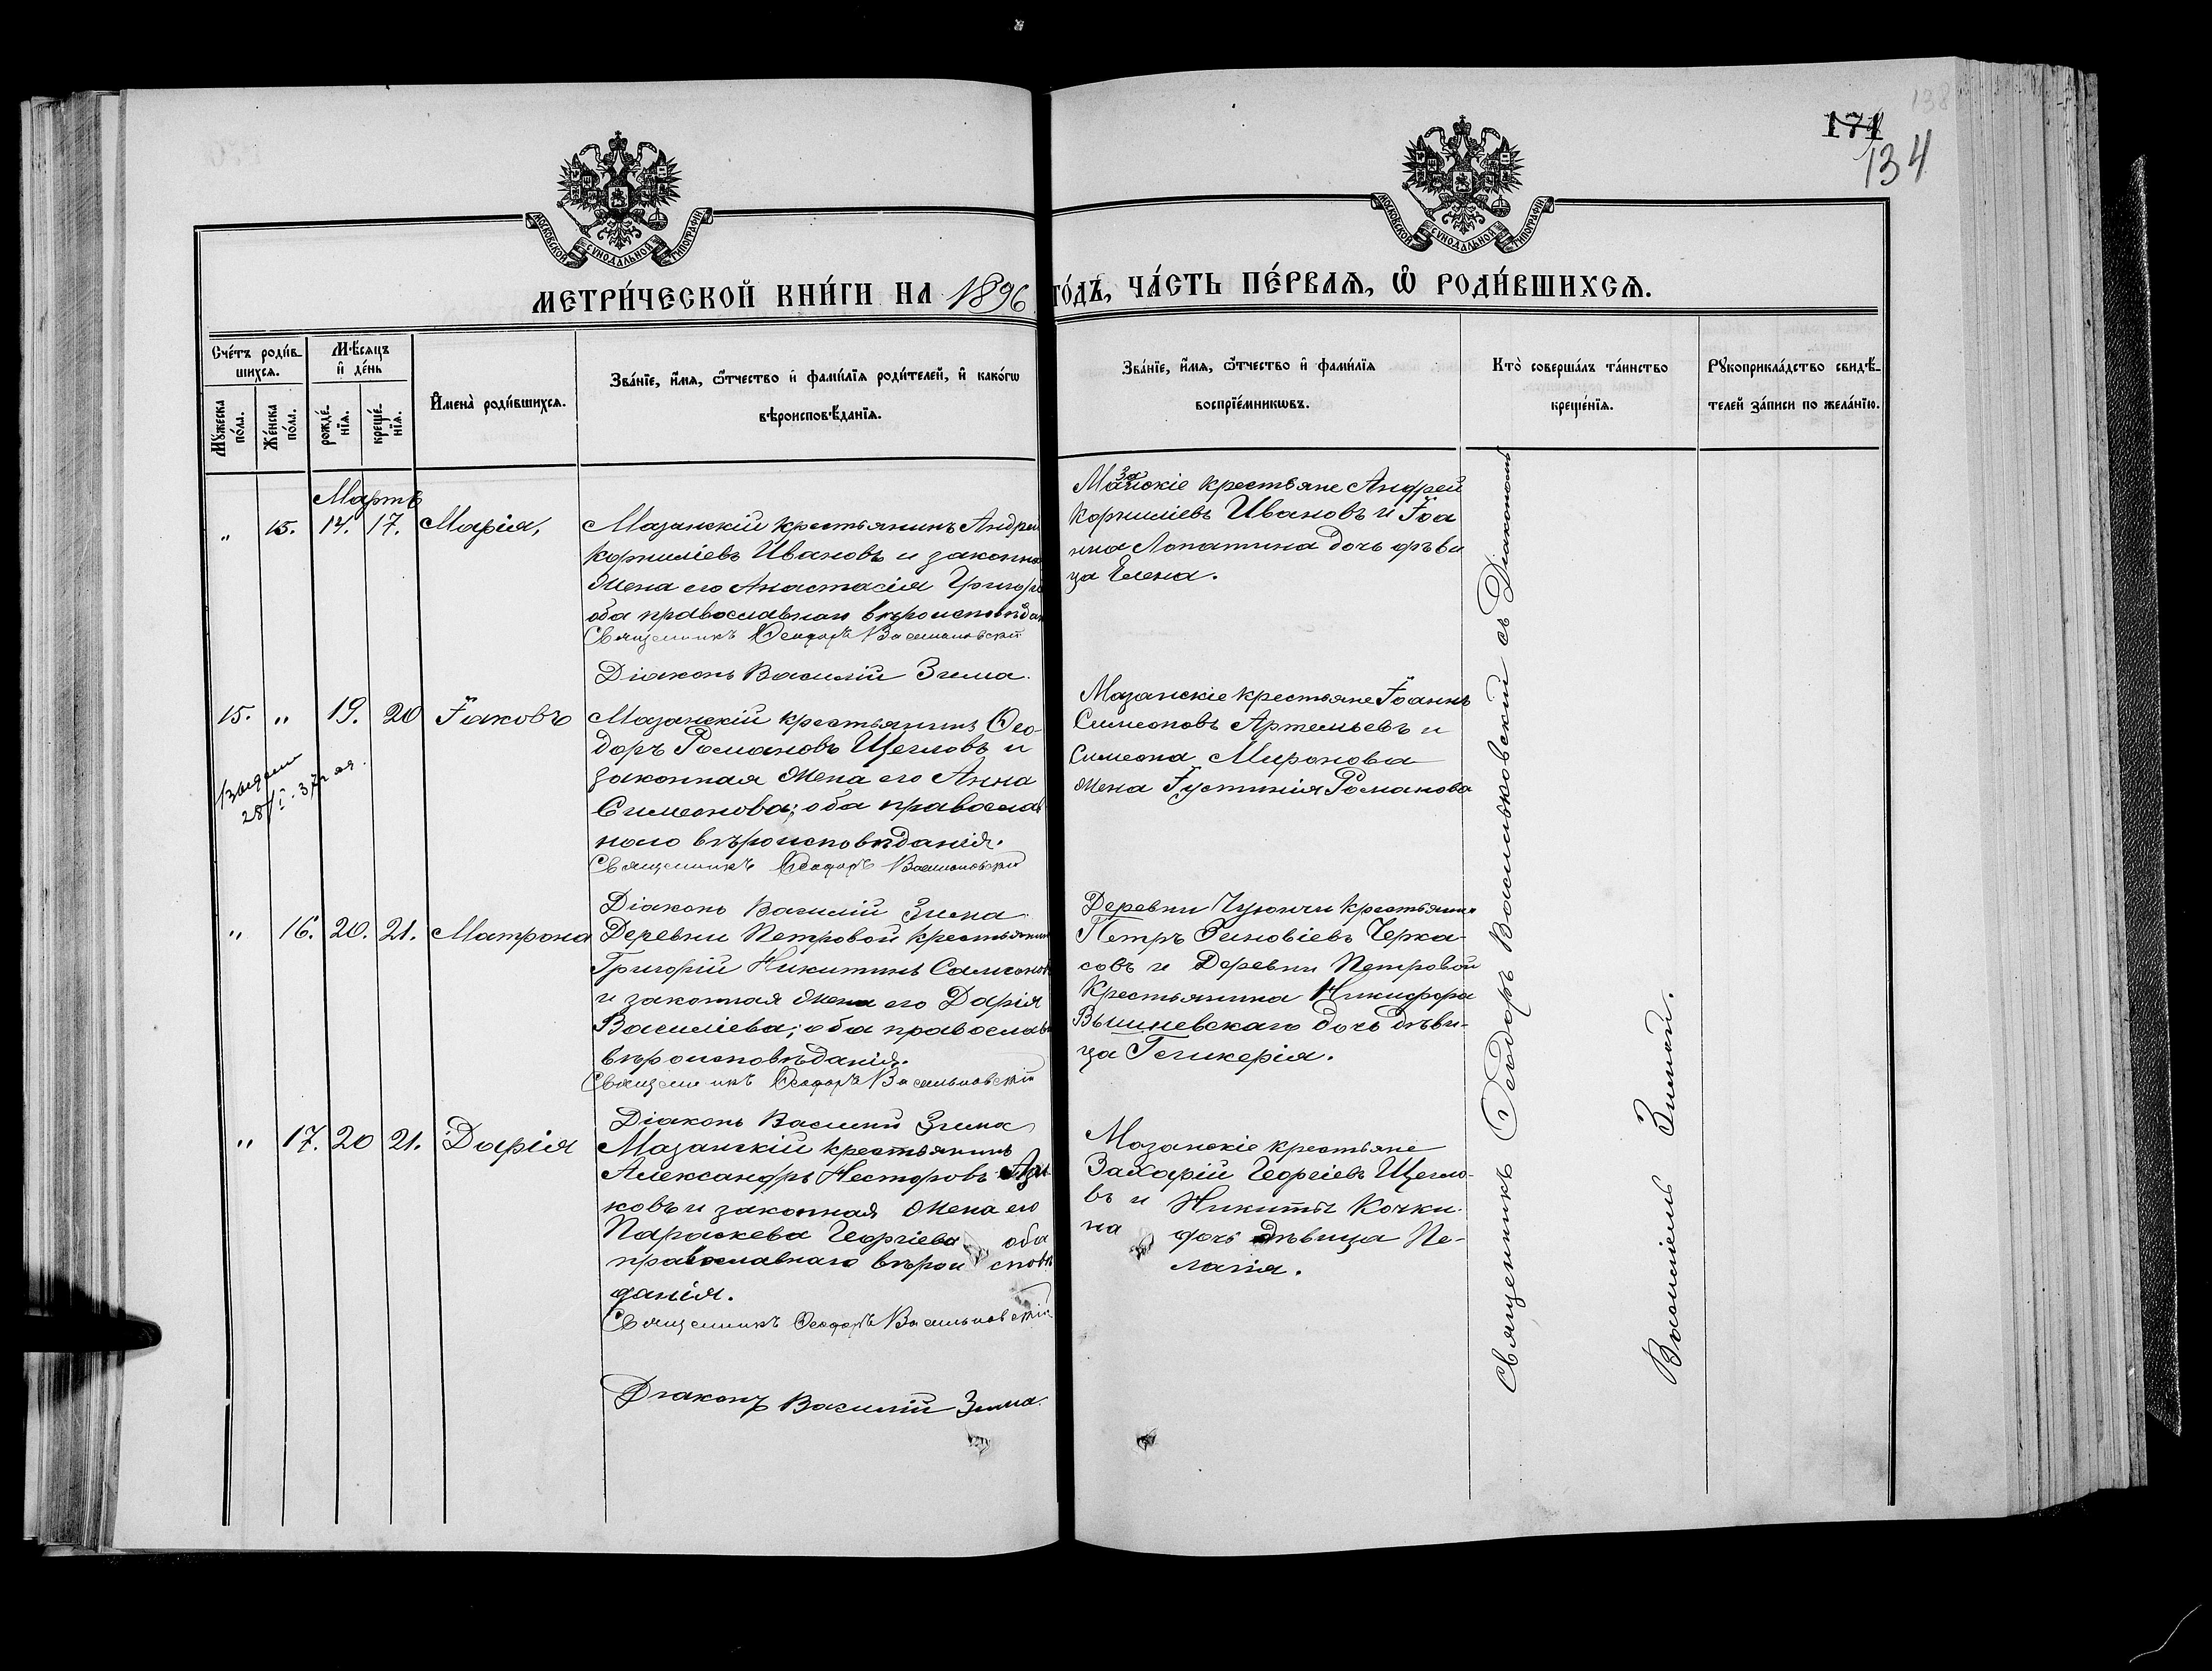 138
171
134
МОСКОВСКОЙ СѴНОДАЛЬНОЙ ТИПОГРАФІИ
МОСКОВСКОЙ СѴНОДАЛЬНОЙ ТИПОГРАФІИ
МЕТРИ́ЧЕСКОЙ КНИ́ГИ НА 1896 ГО́ДЪ, ЧА́СТЬ ПЕ́РВАѦ, Ѡ҆ РОДИ́ВШИХСѦ.
Сче́тъ роди́в-
шихсѧ.
Мꙋ́жеска по́ла.
Же́нска по́ла.
Мѣ́сѧцъ
и҆ де́нь
рожде́-
нїѧ.
креще́-
нїѧ.
И҆мена̀ роди́вшихсѧ.
Зва́нїе, и҆́мѧ, ѻ҆́тчество и҆ фами́лїѧ роди́телей, и҆ како́гѡ
вѣроисповѣ́данїѧ.
Зва́нїе, и҆́мѧ, ѻ҆́тчество и҆ фами́лїѧ
воспрїе́мникѡвъ.
Кто̀ соверша́лъ та́инство
креще́нїѧ.
Рꙋкоприкла́дство свидѣ́-
телей за́писи по жела́нїю.
Мартъ
" 15. 14. 17. Марія,
Мазанскій крестьянинъ Андрей
Корниліевъ Ивановъ и законна
жена его Анастасія Григорь
оба православнаго вѣроисповѣдан
Священникъ Ѳеодоръ Васильковскій
Діаконъ Василій Зима.
Мазанскіе крестьяне Андрей
Корниліевъ Ивановъ и Іоа
нна Лопатина дочь дѣви
ца Елена.
15. " 19. 20 Іаковъ
28/I 37
Мазанскій крестьянинъ Ѳео-
доръ Романовъ Щегловъ и
законная жена его Анна
Симеонова; оба православ
наго вѣроисповѣданія.
Священникъ Ѳеодоръ Васильковскій
Діаконъ Василій Зима
Мазанскіе крестьяне Іоаннъ
Симеоновъ Артемьевъ и
Симеона Миронова
жена Іустинія Романова
" 16. 20. 21. Матрона
Деревни Петровой крестьянинъ
Григорій Никитинъ
и законная жена его Дарія
Василіева; оба православн
вѣроисповѣданія.
Священникъ Ѳеодоръ Васильковскій
Діаконъ Василій Зима
Деревни крестьянинъ
Петръ Зиновіевъ Черка-
совъ и Деревни Петровой
Крестьянина Никифора
Вышневскаго дочь дѣви-
ца Гликерія.
" 17. 20 21. Дарія
Мазанскій крестьянинъ
Александръ Несторовъ
ковъ и законная жена его
Параскева Георгіева оба
православнаго вѣроисповѣ
данія.
Священникъ Ѳеодоръ Васильковскій
Діаконъ Василій Зима.
Мазанскіе крестьяне
Захарій Георгіевъ Щегло-
въ и Никиты Кочки
на дочь дѣвица Пе-
лагія.
Священникъ Ѳеодоръ Васильковскій съ Діакономъ
Василіемъ Зимой.